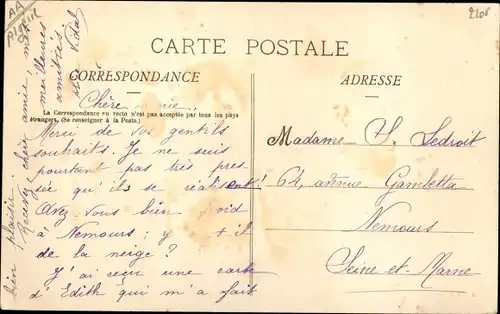 AA
Algérie
2205
CARTE POSTALE
CORRESPONDANCE
ADRESSE
Chère amie,
La Correspondance au recto n'est pas acceptée par tous les pays
étrangers. (Se renseigner à la Poste.)
Merci de vos gentils
souhaits. Je ne suis
pourtant pas très pres
sée qu'ils se réalisent!
Avez-vous bien froid
à Nemours; y a-t-il
de la neige?
J'ai reçu une carte
d'Edith qui m'a fait
bien plaisir.
Recevez, chère amie, mes
meilleures
amitiés
Vidal
Madame S. Ledroit
64, avenue Gambetta
Nemours
Seine-et-Marne